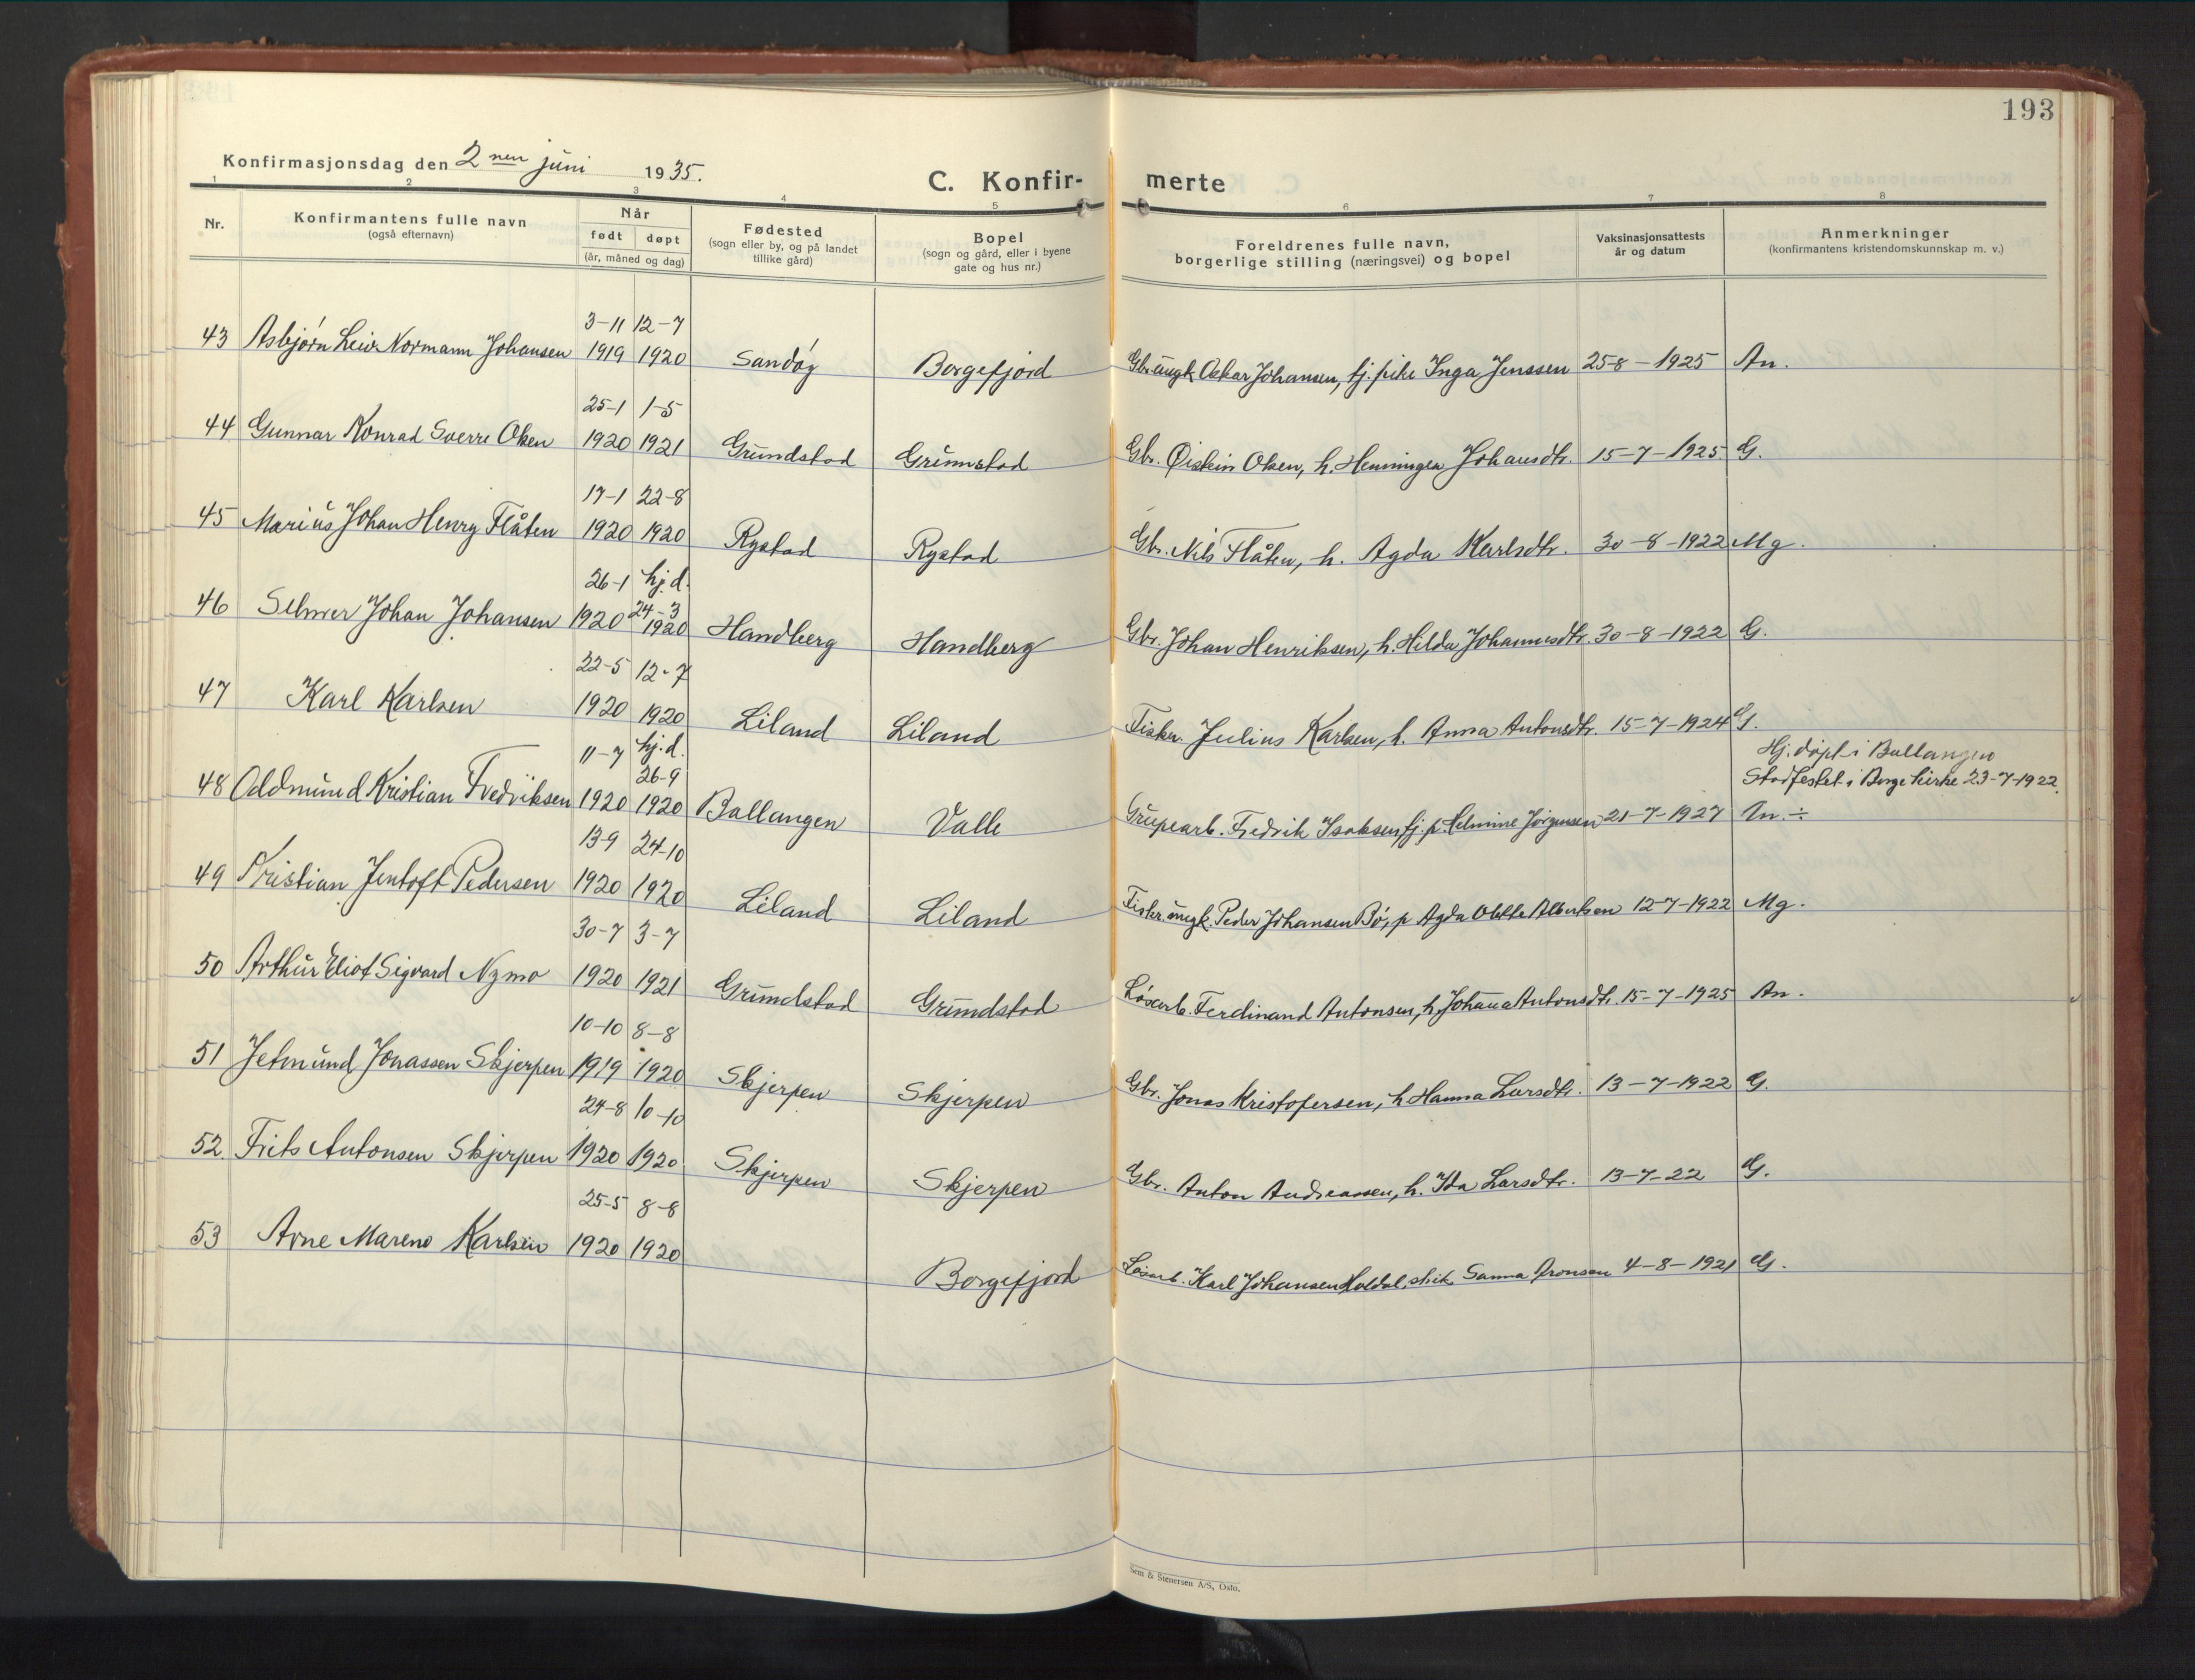 193
Konfirmasjonsdag den 2 nen juni 1935.
C. Konfir- merte
1 2 3 4 5 6 7 8
Nr.
Konfirmantens fulle navn
(også efternavn)
Når
født døpt
(år, måned og dag)
Fødested
(sogn eller by, og på landet
tillike gård)
Bopel
(sogn og gård, eller i byene
gate og hus nr.)
Foreldrenes fulle navn,
borgerlige stilling (næringsvei) og bopel
Vaksinasjonsattests
år og datum
Anmerkninger
(konfirmantens kristendomskunnskap m. v.)
3-11 12-7
43 Asbjørn Leiv Normann Johansen 1919 1920 Sandøy Borgefjord Gbr. ungk Oskar Johansen, tj. pike Inga Jenssen 25-8-1925 An.
25-1 1-5
44 Gunnar Konrad Sverre Olsen 1920 1921 Grundstad Grunnstad Gbr. Øistein Olsen, h. Henningea Johansdtr. 15-7-1925 G.
17-1 22-8
45 Marius Johan Henry Flåten 1920 1920 Rystad Rystad Gbr. Nils Flåten, h. Agda Karlsdtr. 30-8-1922 Mg.
26-1 hj.d.
24-3
46 Selmer Johan Johansen 1920 1920 Handberg Handberg Gbr. Johan Henriksen, h. Hilda Johannesdtr. 30-8-1922 G.
22-5 12-7
47 Karl Karlsen 1920 1920 Liland Liland Fisker. Julius Karlsen, h. Anna Antonsdtr. 15-7-1924 G.
11-7 hj.d. Hj. døpt i Ballangen
26-9 Stadfestet i Borge kirke 23-7-1922.
48 Oddmund Kristian Fredriksen 1920 1920 Ballangen Valle Grupearb. Fredrik Isaksen, tj. p. Helmine Jørgensen 21-7-1927 An. ÷
13-9 24-10
49 Kristian Jentoft Pedersen 1920 1920 Liland Liland Fisker ungk. Peder Johansen Bø, p Agda Albertsen 12-7-1922 Mg.
30-7 3-7
50 Arthur Eliot Sigvard Nymo 1920 1921 Grundstad Grundstad Løsarb. Ferdinand Antonsen, h. Johana Antonsdtr. 15-7-1925 An.
10-10 8-8
51 Jetmund Jonassen Skjerpen 1919 1920 Skjerpen Skjerpen Gbr. Jonas Kristofersen, h. Hanna Larsdtr. 13-7-1922 G.
24-8 10-10
52. Frits Antonsen Skjerpen 1920 1920 Skjerpen Skjerpen Gbr. Anton Andreassen, h. Ida Larsdtr. 13-7-22 G.
25-5 8-8
53 Arne Mareno Karlsen 1920 1920 Borgefjord Løsarb. Karl Johansen Sanna Aronsen 4-8-1921 G.
Sem & Stenersen A/S, Oslo.